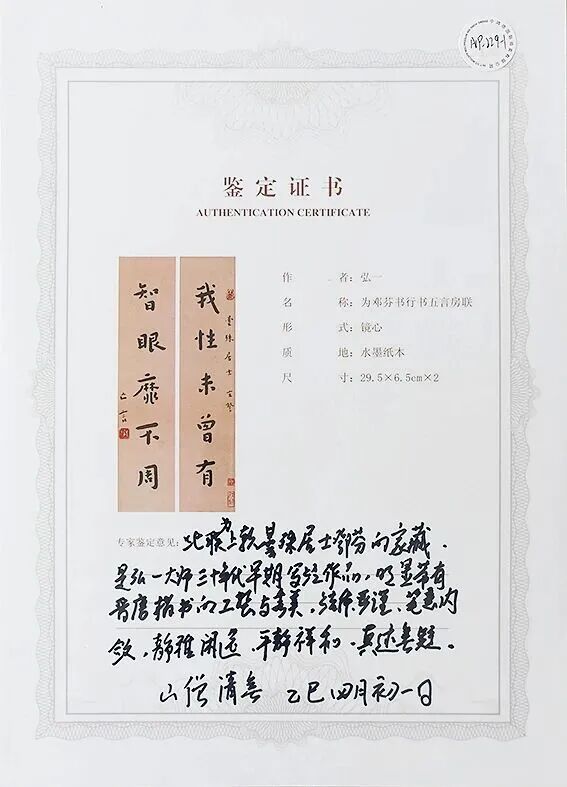 AP.2291
鉴定证书
AUTHENTICATION CERTIFICATE
作者：弘一
名称：为邓芬书行书五言房联
形式：镜心
质地：水墨纸本
尺寸：29.5×6.5cm×2
我性未曾有
智眼靡不周
昙殊居士
亡言
专家鉴定意见：此联为上款昙殊居士邓芬的家藏．
是弘一大师三十年代早期写经作品，明显带有
晋唐楷书的工整与秀美，结体严谨、笔意内
敛，静雅闲逸，平静祥和．真迹无疑．
山僧清无 乙巳四月初一日